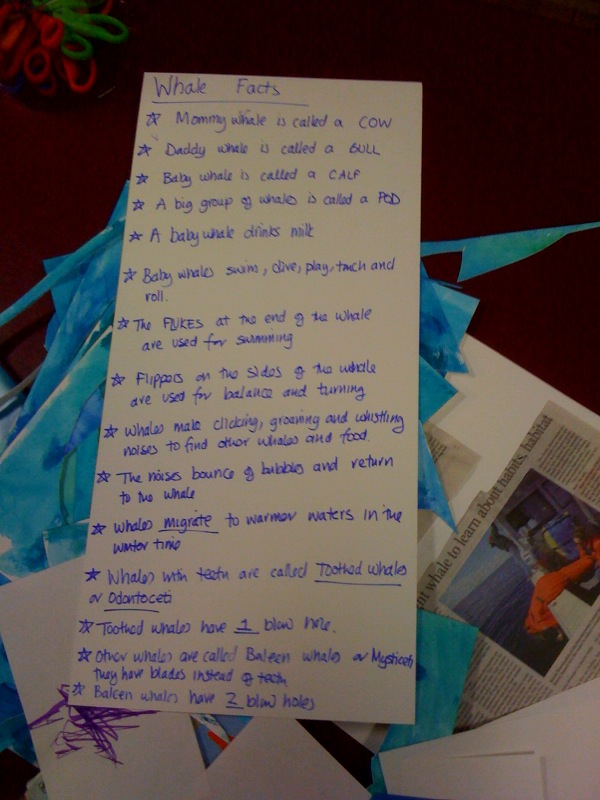 Whale Facts
☆ Mommy whale is called a COW
☆ Daddy whale is called a BULL
☆ Baby whale is called a CALF
☆ A big group of whales is called a POD
☆ A baby whale drinks milk
☆ Baby whales swim, dive, play, touch and
roll.
☆ The FLUKES at the end of the whale
are used for swimming
☆ Flippers on the sides of the whale
are used for balance and turning
☆ Whales make clicking, groaning and whistling
noises to find other whales and food.
☆ The noises bounce of bubbles and return
to the whale
☆ Whales migrate to warmer waters in the
winter time
☆ Whales with teeth are called Toothed whales
or Odontoceti
☆ Toothed whales have 1 blow hole.
☆ Other whales are called Baleen whales or Mysticeti
they have blades instead of teeth
☆ Baleen whales have 2 blow holes
whale to learn about habits, habitat